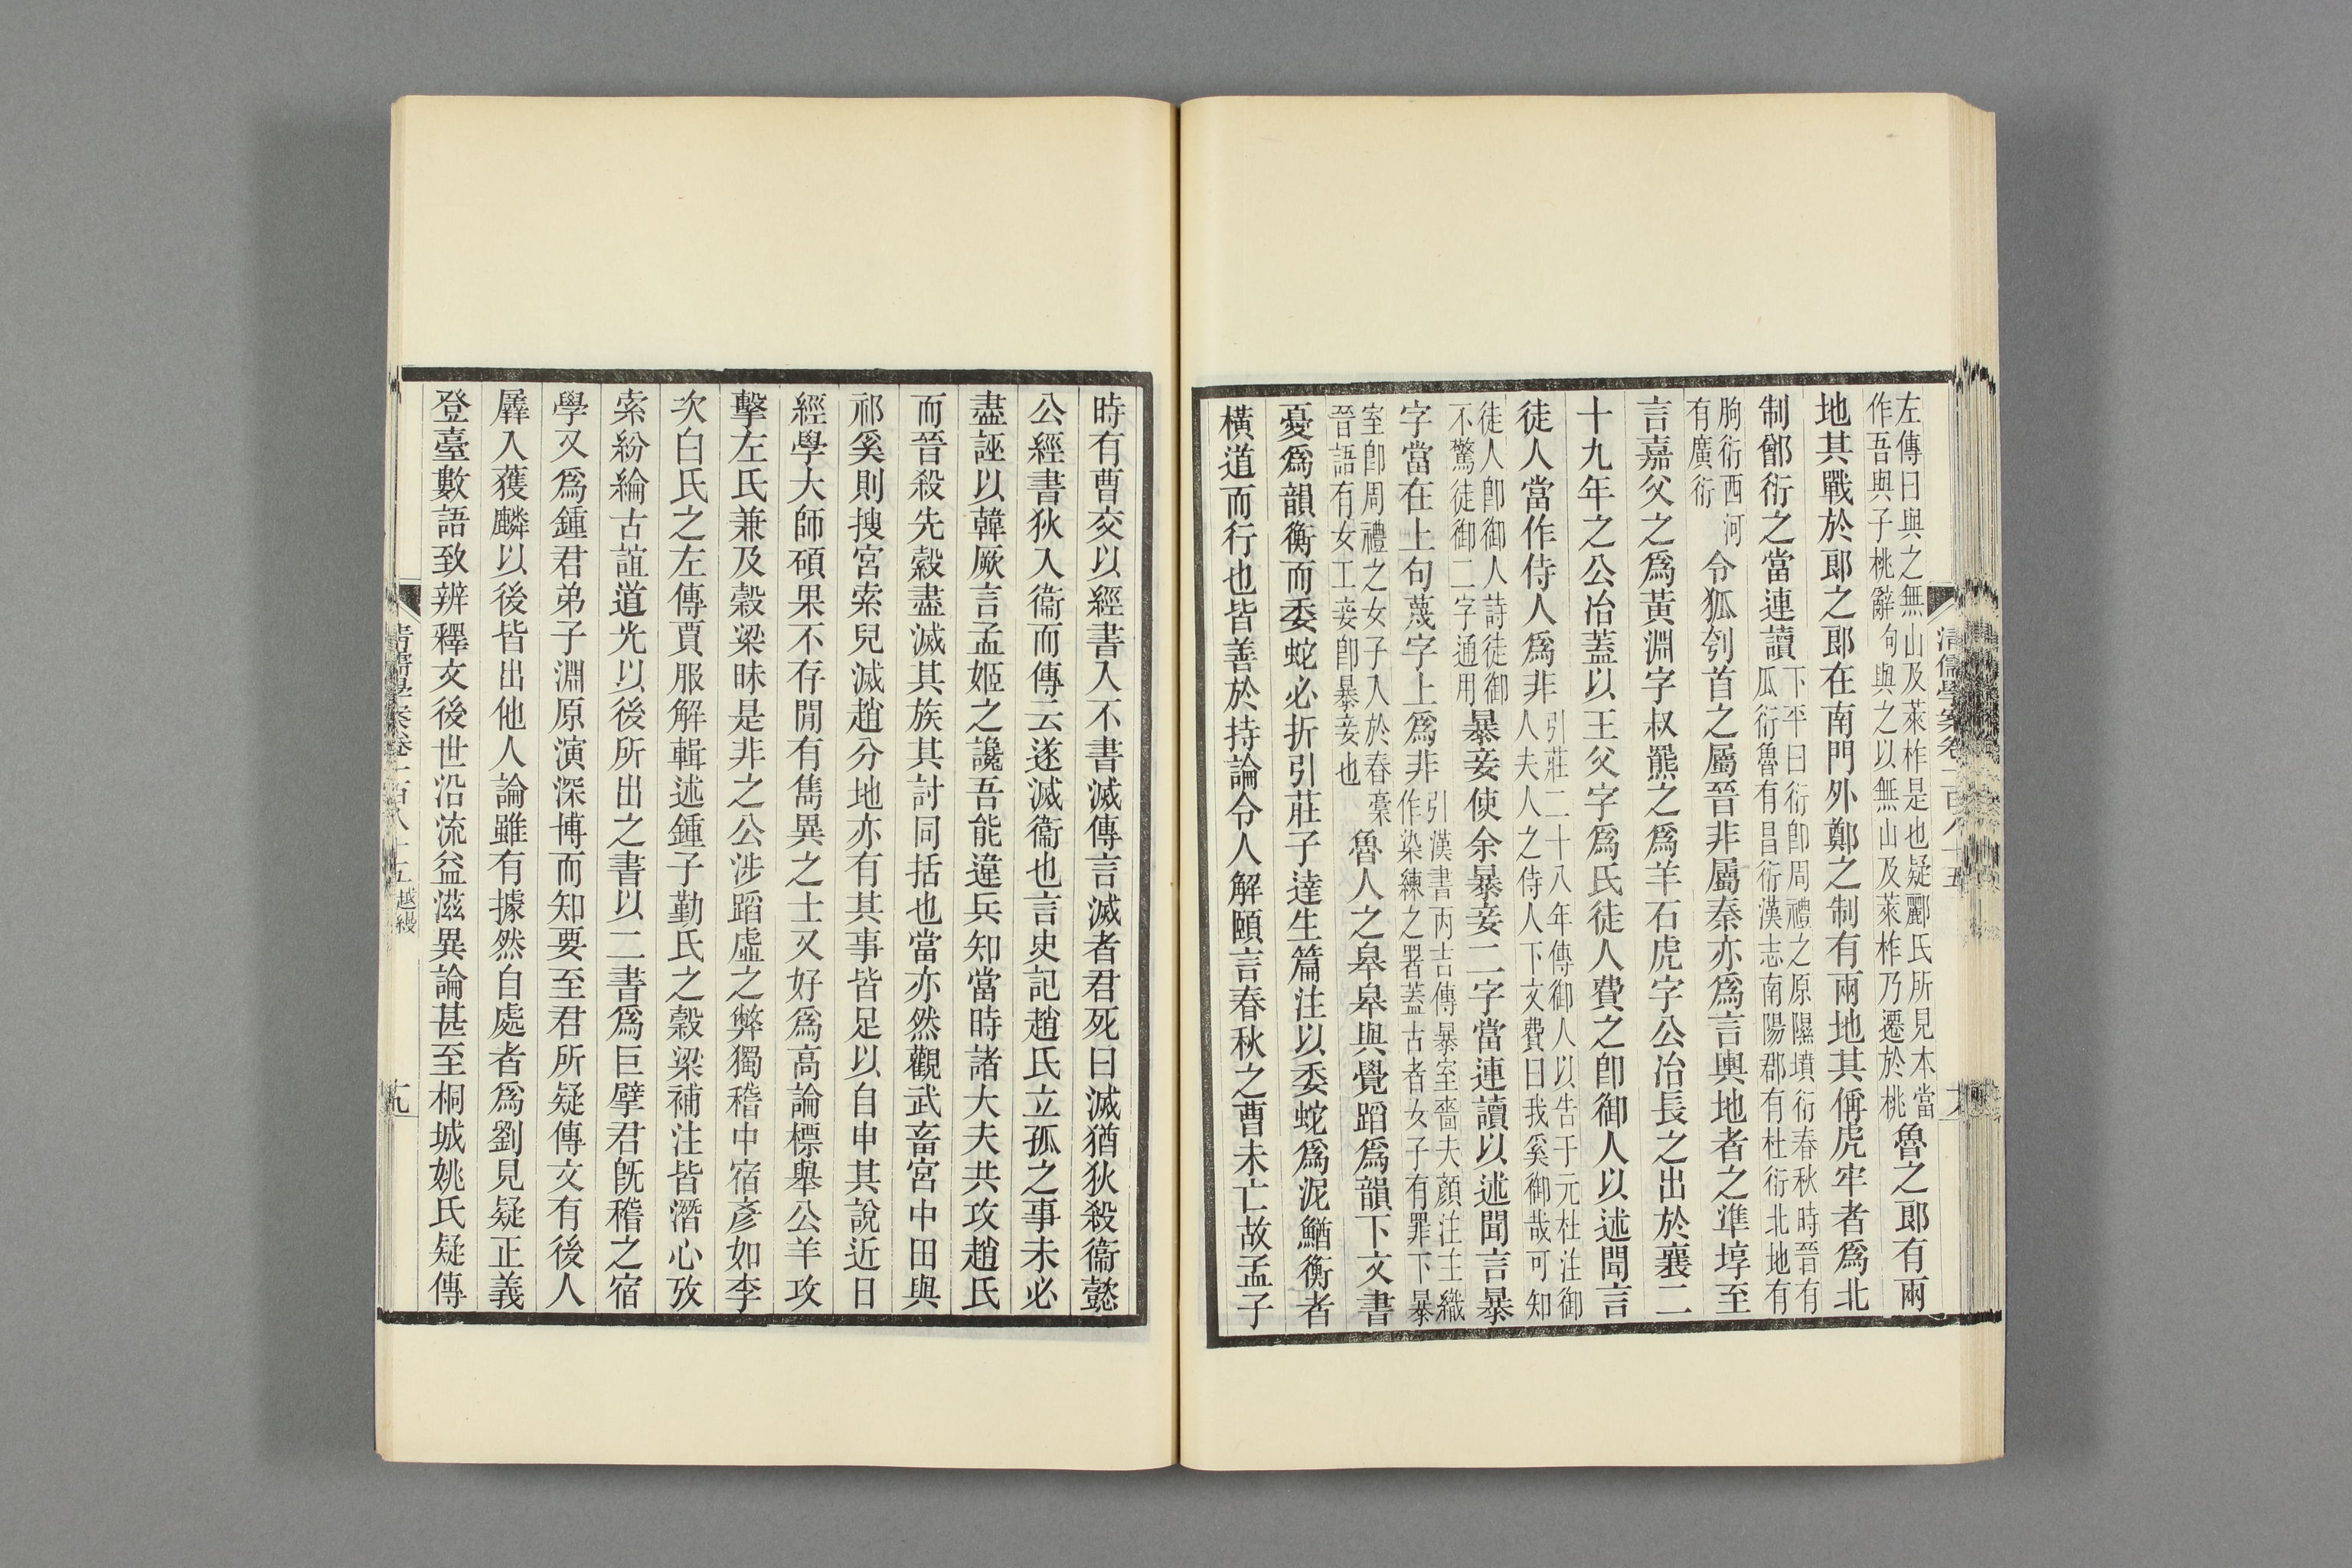 左傳曰與之無山及萊柞是也疑酈氏所見本當
作吾與子桃辭句與之以無山及萊柞乃遷於桃
魯之郎有兩
地其戰於郎之郎在南門外鄭之制有兩地其偁虎牢者爲北
制鄫衍之當連讀
下平曰衍卽周禮之原隰墳衍春秋時晉有
瓜衍魯有昌衍漢志南陽郡有杜衍北地有
朐衍西河
有廣衍
令狐刳首之屬晉非屬秦亦爲言輿地者之準埻至
言嘉父之爲黃淵字叔羆之爲羊石虎字公冶長之出於襄二
十九年之公冶蓋以王父字爲氏徒人費之卽御人以述聞言
徒人當作侍人爲非
引莊二十八年傳御人以告于元杜注御
人夫人之侍人下文費曰我奚御哉可知
徒人卽御人詩徒御
不驚徒御二字通用
暴妾使余暴妾二字當連讀以述聞言暴
字當在上句蔑字上爲非
引漢書丙吉傳暴室嗇夫顏注主織
作染練之署蓋古者女子有罪下暴
室卽周禮之女子入於舂稾
晉語有女工妾卽暴妾也
魯人之皋皋與覺蹈爲韻下文書
憂爲韻衡而委蛇必折引莊子達生篇注以委蛇爲泥鰌衡者
橫道而行也皆善於持論令人解頤言春秋之曹未亡故孟子
清儒學案卷一百八十五
十八
時有曹交以經書入不書滅傳言滅者君死曰滅猶狄殺衞懿
公經書狄入衞而傳云遂滅衞也言史記趙氏立孤之事未必
盡誣以韓厥言孟姬之讒吾能違兵知當時諸大夫共攻趙氏
而晉殺先縠盡滅其族其討同括也當亦然觀武畜宮中田與
祁奚則搜宮索兒滅趙分地亦有其事皆足以自申其說近日
經學大師碩果不存閒有雋異之士又好爲高論標舉公羊攻
擊左氏兼及穀梁昧是非之公涉蹈虛之弊獨稽中宿彥如李
次白氏之左傳賈服解輯述鍾子勤氏之穀梁補注皆潛心攷
索紛綸古誼道光以後所出之書以二書爲巨擘君旣稽之宿
學又爲鍾君弟子淵原演深博而知要至君所疑傳文有後人
羼入獲麟以後皆出他人論雖有據然自處者爲劉見疑正義
登臺數語致辨釋文後世沿流益滋異論甚至桐城姚氏疑傳
清儒學案卷一百八十五 越縵
十九